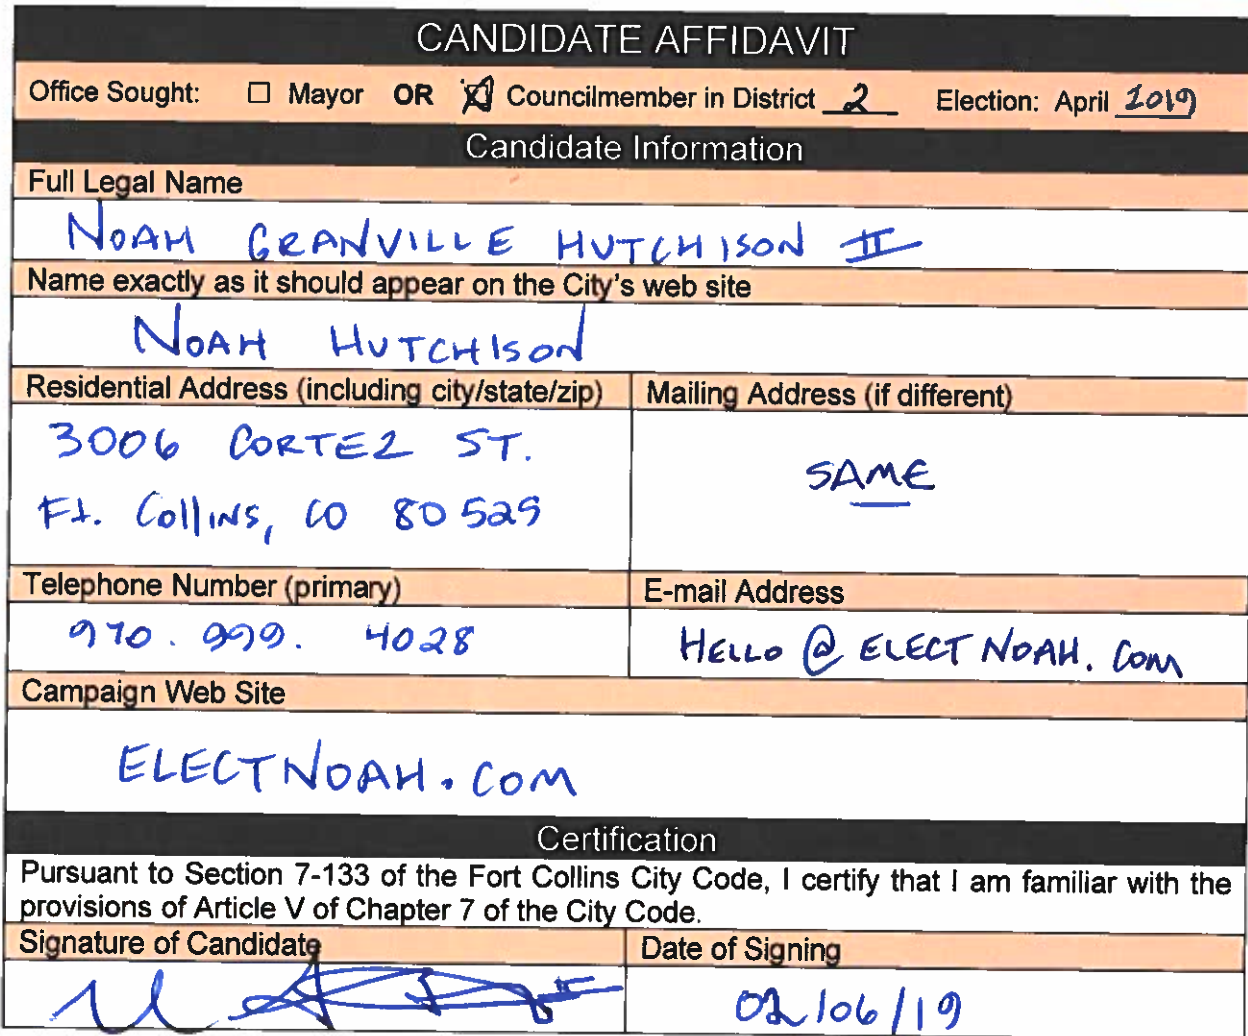 CANDIDATE AFFIDAVIT
Office Sought: ☐ Mayor OR ☒ Councilmember in District 2 Election: April 2019
Candidate Information
Full Legal Name
NOAH GRANVILLE HUTCHISON II
Name exactly as it should appear on the City's web site
NOAH HUTCHISON
Residential Address (including city/state/zip)
3006 CORTEZ ST.
Ft. Collins, CO 80525
Mailing Address (if different)
SAME
Telephone Number (primary)
970. 999. 4028
E-mail Address
HELLO @ ELECTNOAH. COM
Campaign Web Site
ELECTNOAH.COM
Certification
Pursuant to Section 7-133 of the Fort Collins City Code, I certify that I am familiar with the
provisions of Article V of Chapter 7 of the City Code.
Signature of Candidate
Date of Signing
02/06/19